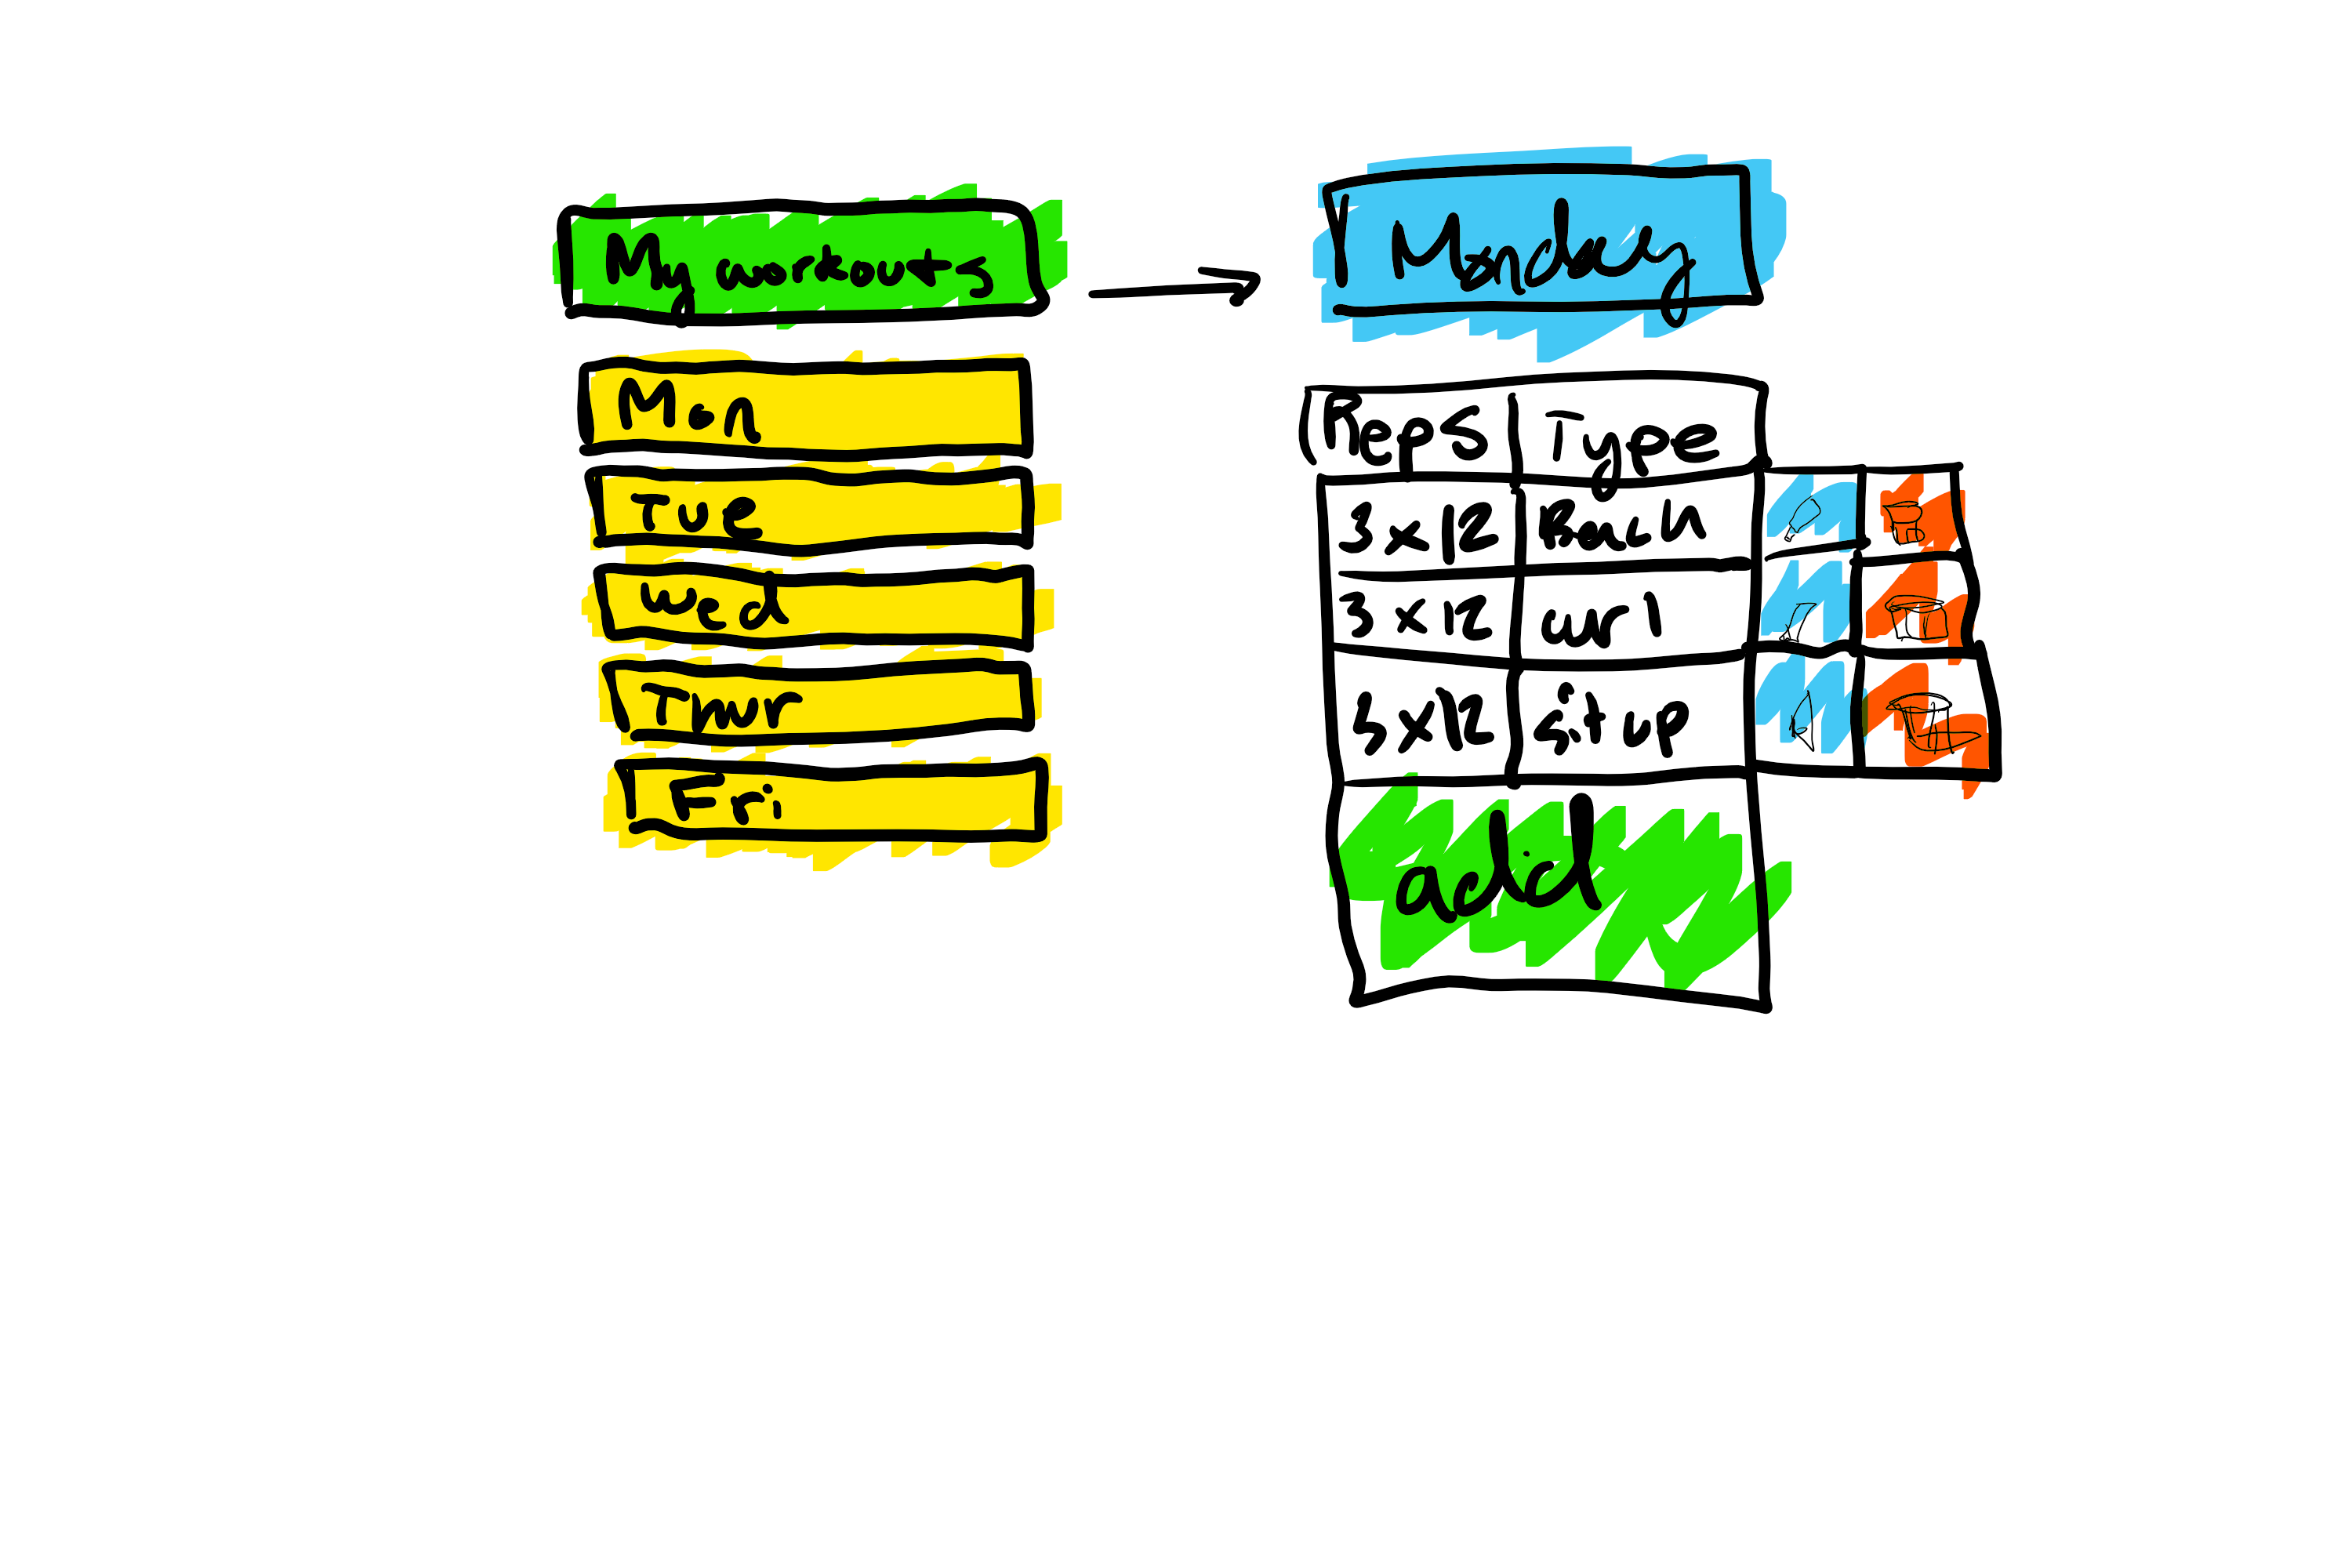 My workouts
Mon
Tue
Wed
Thur
Fri
Monday
Reps Type
3 x 12 Bench
3 x 12 curl
3 x 12 situp
add